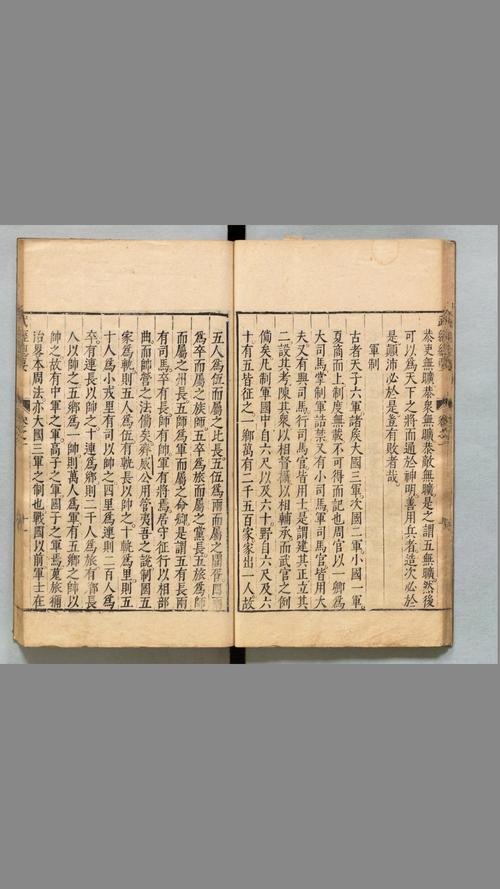 恭吏無曠恭衆無曠恭敵無曠是之謂五無曠然後
可以爲天下之將而通於神明善用兵者造次必於
是顛沛必於是豈有敗者哉
軍制
古者天子六軍諸矦大國三軍次國二軍小國一軍
夏商而上制度無載不可得而記也周官以一卿爲
大司馬掌制軍誥禁又有小司馬軍司馬官皆用大
夫又有輿司馬行司馬官皆用士是謂建其正立其
二設其考陳其衆以相督攝以相輔承而武官之例
備矣凡制軍國中自六尺以及六十野自六尺及六
十有五皆征之一鄉萬有二千五百家家出一人故
五人爲伍而屬之比長五伍爲兩而屬之閭胥四兩
爲卒而屬之族師五卒爲旅而屬之黨長五旅爲師
而屬之州長五師爲軍而屬之命卿是謂五有長兩
有司馬卒有長師有帥軍有將焉居守征行以相部
曲而師營之法備矣齊威公用管夷吾之說制國五
家爲軌則五人爲伍有軌長以帥之十軌爲里則五
十人爲小戎里有司以帥之四里爲連則二百人爲
卒有連長以帥之十連爲鄉則二千人爲旅有鄉長
人以帥之五鄉爲一帥則萬人爲軍有五鄉之帥以
帥之故有中軍之軍高子之軍國子之軍焉蒐旅獮
治畧本周法亦大國三軍之制也戰國以前軍士在